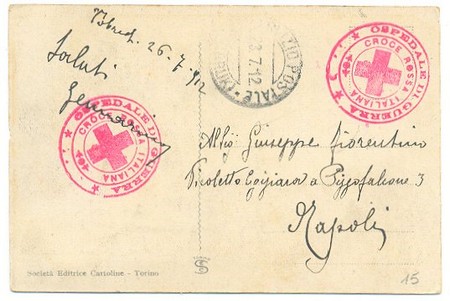 26.7.912
Saluti
OSPEDALE DI GUERRA
CROCE ROSSA ITALIANA
POSTALE
7.12
OSPEDALE DI GUERRA
CROCE ROSSA ITALIANA
Giuseppe Fiorentino
Vicoletto Egiziaca a Pizzofalcone 3
Napoli
Società Editrice Cartoline - Torino
15